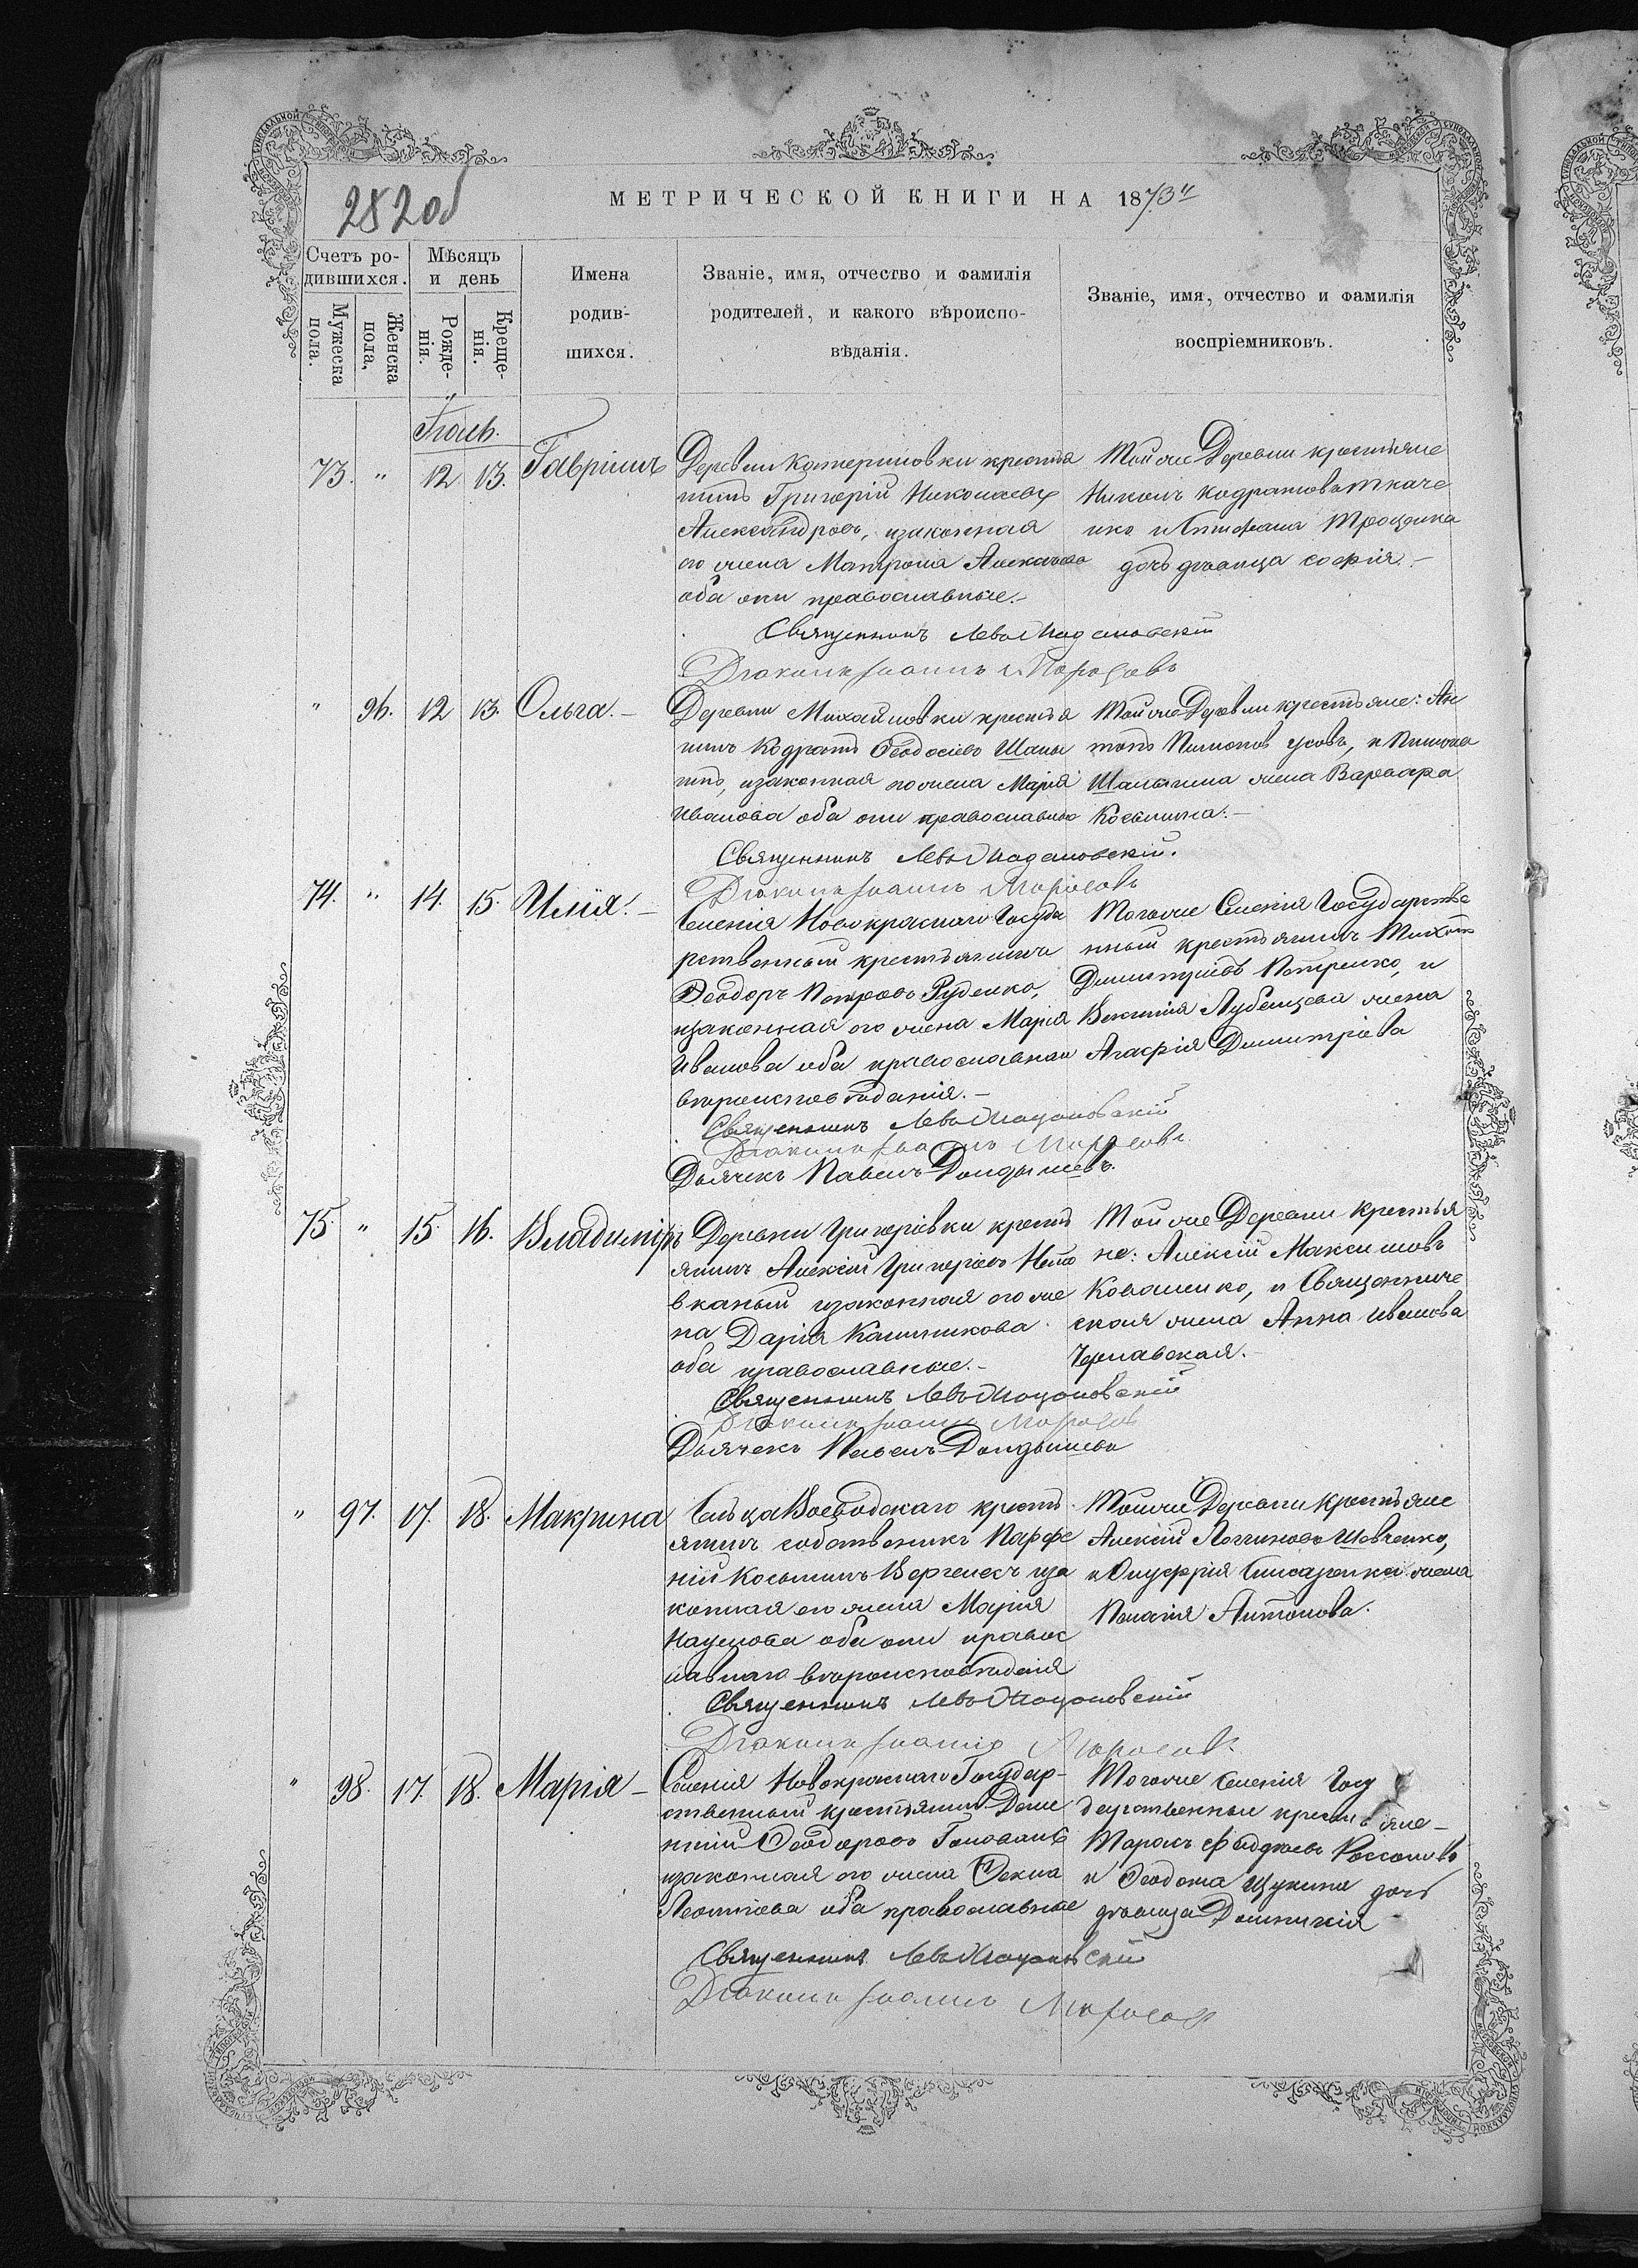 282 об
МЕТРИЧЕСКОЙ КНИГИ НА 1873й
Счетъ ро-
дившихся.
Мужеска
пола.
Женска
пола,
Мѣсяцъ
и день
Рожде-
нія.
Креще-
нія.
Имена
родив-
шихся.
Званіе, имя, отчество и фамилія
родителей, и какого вѣроиспо-
вѣданія.
Званіе, имя, отчество и фамилія
воспріемниковъ.
Іюль.
73. " 12 13. Гавріилъ
Деревни Катериновки крестья
нинъ Григорій Николаевъ
Александровъ, изаконная
его жена Матрона
оба они православные.-
Священникъ Левъ
Діаконъ Іоаннъ Морозовъ
Той же Деревни крестьяне
Никол кодратовъ ткаче
нко и
дочь дѣвица софія.-
" 96. 12 13. Ольга.-
Деревни Михайловки крестья
нинъ Кодратъ Ѳеодосіевъ Шалы
гинъ, изаконная его жена Марія
Иванова оба они православные
Священникъ Левъ
Діаконъ Іоаннъ Морозовъ
Той же Деревни крестьяне: Ан
тонъ Пимоновъ усовъ, и
Шалыгина жена Варвара
Косьмина.-
74. " 14. 15. Илія.-
Селенія Новокраснаго Госуда
рственный крестьянинъ
Ѳеодоръ Петровъ Руденко,
изаконная его жена Марія
Иванова оба православнаго
вѣроисповѣданія.-
Священникъ Левъ
Діаконъ Іоаннъ Морозовъ
Дьячекъ Павелъ
Тогоже Селенія Государстве
нный крестьянинъ Тихонъ
Димитріевъ Петренко, и
Лубенцева жена
Агафія Димитріева
75. " 15. 16. Владиміръ
Деревни Григоріевки кресть
янинъ Алексій Григоріевъ
изаконная его же
на Дарія Калинникова
оба православные.-
Священникъ Левъ
Діаконъ Іоаннъ Морозовъ
Дьячекъ Павелъ
Той же Деревни Крестья
не: Алексій Максимовъ
Коваленко, и Священниче
ская жена Анна Иванова
Чернавская.-
" 97. 17. 18. Макрина
Сельца Воеводскаго кресть
янинъ собственикъ Парфе
ній Косьминъ Вергелесъ иза
конная его жена Марія
Наумова оба они правос
лавнаго вѣроисповѣданія
Священникъ Левъ
Діаконъ Іоаннъ Морозовъ
Той же Деревни Крестьяне
Алексій Логгиновъ Шевченко,
и Онуфрія жена
Пелагія Антонова.
" 98. 17. 18. Марія-
Селенія Новокраснаго Государ-
ственный крестьянинъ
Ѳеодоровъ
изаконная его жена Ѳекла
Леонтіева оба православные
Священникъ Левъ
Діаконъ Іоаннъ Морозовъ
Тогоже Селенія Госу
дарственные крестьяне-
Тарасъ
и Ѳеодота Щукина дочь
дѣвица Домникія